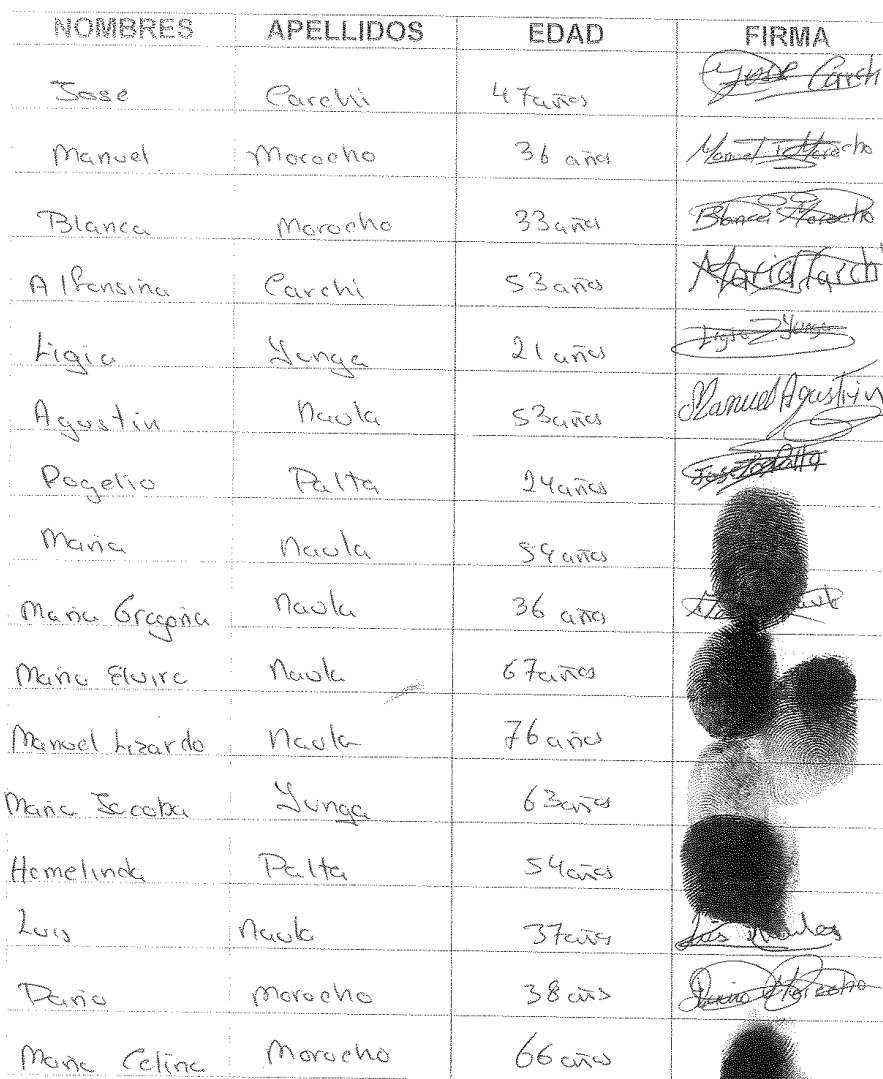 NOMBRES APELLIDOS EDAD FIRMA
Jose Carchi 47 años Jose Carchi
Manuel Morocho 36 años Manuel Morocho
Blanca Morocho 33 años Blanca Morocho
Alfonsina Carchi 53 años Maria Carchi
Ligia Yunga 21 años Ligia Yunga
Agustin Naula 53 años Manuel Agustin
Rogelio Palta 24 años Jose Palta
Maria Naula 54 años
Maria Gregoria Naula 36 años
Maria Elvira Naula 67 años
Manuel Lizardo Naula 76 años
Maria Jacoba Yunga 63 años
Hemelinda Palta 54 años
Luis Naula 37 años Luis Naulas
Dario Morocho 38 años Dario Morocho
Maria Celina Morocho 66 años